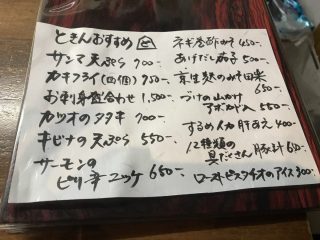 ときんおすすめ
サンマ天ぷら 900-
カキフライ(四個) 750-
お刺身盛合わせ 1,500-
カツオのタタキ 900-
キビナの天ぷら 550-
サーモンの
ピリ辛ユッケ 650-
ネギぬた 450-
あげだし茄子 500-
京生麩のみそ田楽
650-
づけの山かけ
アボカド入 550-
するめイカ肝あえ 400-
12種類の
具だくさん豚汁 610-
ローストピスタチオのアイス 300-